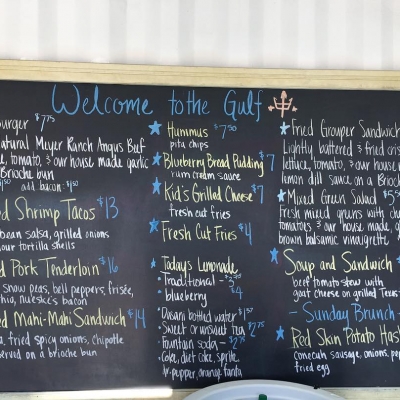 Welcome to the Gulf
urger $7.75
atural Meyer Ranch Angus Beef
e, tomato, & our house made garlic
Brioche bun
add bacon
d Shrimp Tacos $13
bean salsa, grilled onions
our tortilla shells
d Pork Tenderloin $16
snow peas, bell peppers, frisée,
hiu, nueske's bacon
ed Mahi-Mahi Sandwich $14
a, fried spicy onions, chipotle
erved on a brioche bun
Hummus $7.50
pita chips
Blueberry Bread Pudding $7
rum cream sauce
Kid's Grilled Cheese $7
fresh cut fries
Fresh Cut Fries $4
Todays Lemonade
- Traditional -
- blueberry $4
- Dasani bottled water
- Sweet or unsweet tea $2.75
- Fountain soda - $2.75
Coke, diet coke, sprite,
dr. pepper, orange fanta
Fried Grouper Sandwich
Lightly battered & fried cris
lettuce, tomato, & our house
lemon dill sauce on a Brioch
Mixed Green Salad
Fresh mixed greens with che
tomatoes & our house made, g
brown balsamic vinaigrette
Soup and Sandwich
beef tomato stew with
goat cheese on grilled Texas
- Sunday Brunch -
Red Skin Potato Hash
conecuh sausage, onions, pep
fried egg